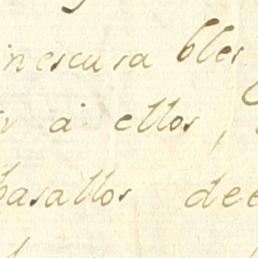 inescusa bles
à ellos,
basallos dee